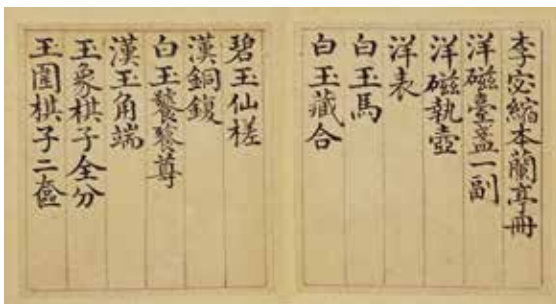 李宓縮本蘭亭冊
洋磁臺盞一副
洋磁執壺
洋表
白玉馬
白玉藏合
碧玉仙槎
漢銅鍑
白玉饕餮尊
漢玉角端
玉象棋子全分
玉圍棋子二奩